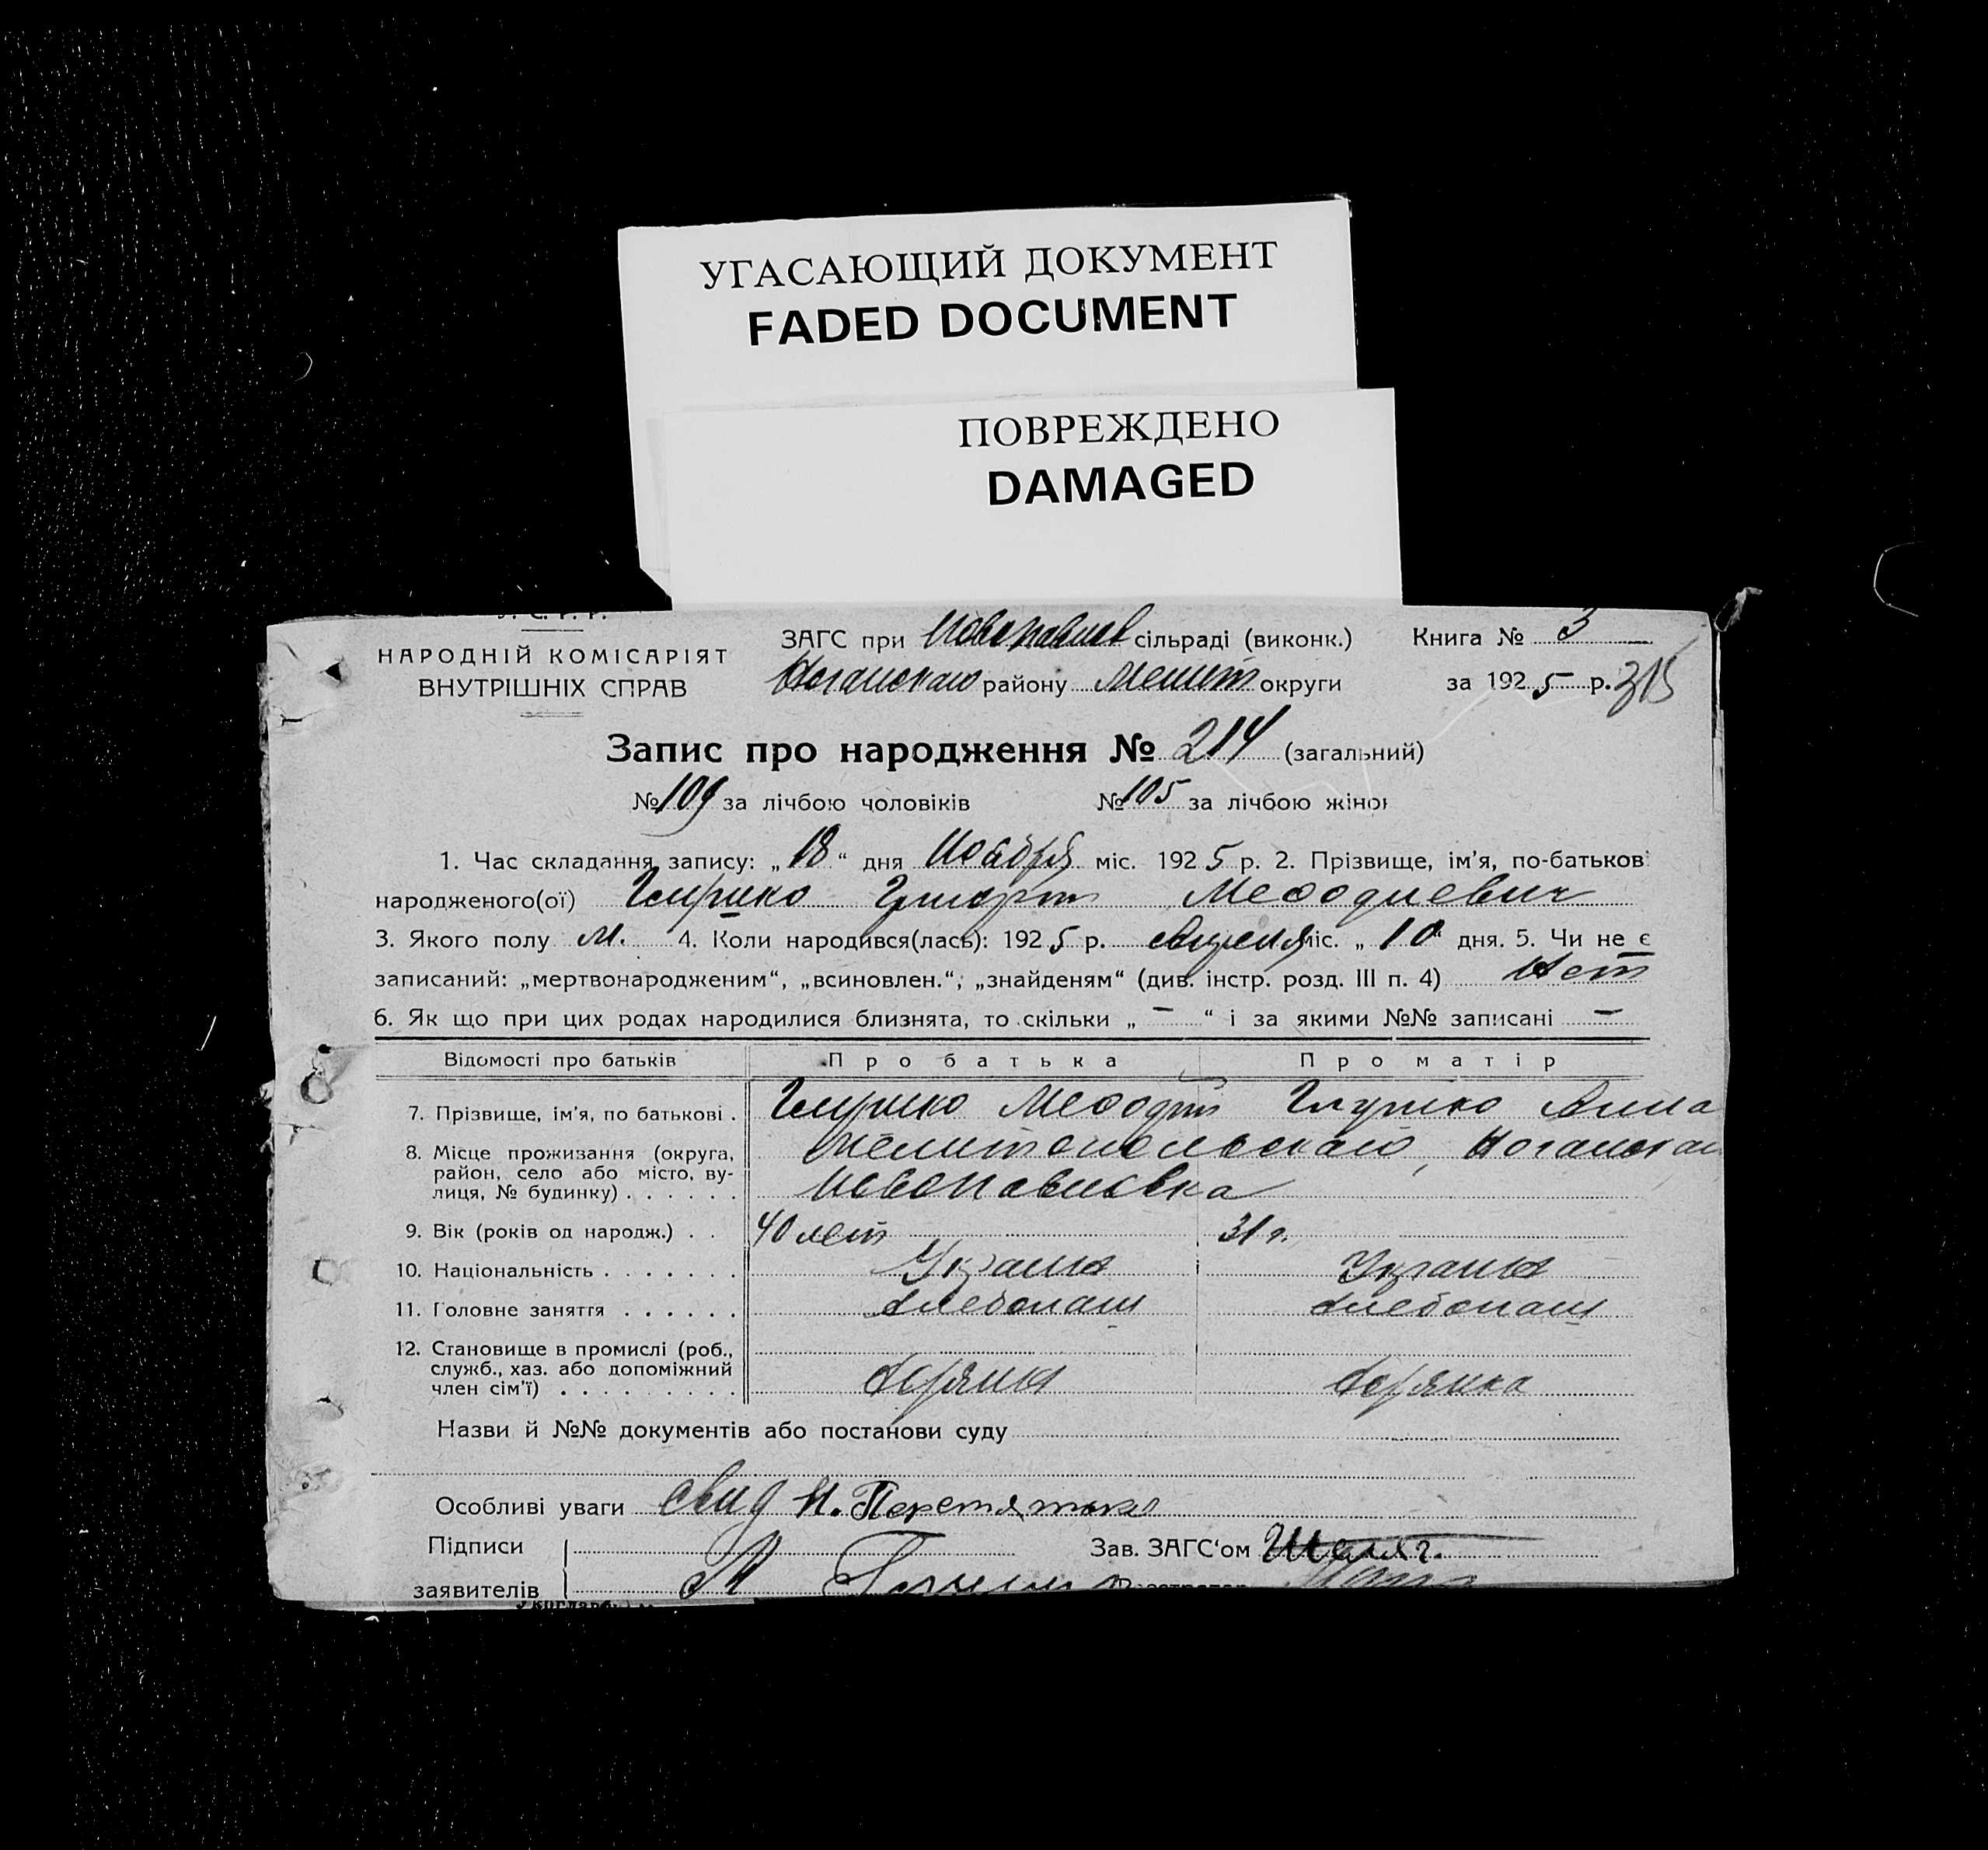 УГАСАЮЩИЙ ДОКУМЕНТ
FADED DOCUMENT
ПОВРЕЖДЕНО
DAMAGED
НАРОДНІЙ КОМІСАРІЯТ
ВНУТРІШНІХ СПРАВ
ЗАГС при Новопавлов сільраді (виконк.) Книга № 3
Ногайского району Мелит округи за 1925 р. 315
Запис про народження № 214 (загальний)
№ 109 за лічбою чоловіків № 105 за лічбою жінок
1. Час складання запису: „18“ дня Ноября міс. 1925 р. 2. Прізвище, ім’я, по-батькові
народженого(ої) Глушко Григорий Мефодиевич
3. Якого полу м. 4. Коли народився(лась): 1925 р. Апреля міс. „10“ дня. 5. Чи не є
записаний: „мертвонародженим“, „всиновлен.“, „знайденям“ (див. інстр. розд. III п. 4) Нет
6. Як що при цих родах народилися близнята, то скільки „ — “ і за якими №№ записані —
Відомості про батьків Про батька Про матір
7. Прізвище, ім’я, по батькові . Глушко Мефодий Глушко Анна
8. Місце проживання (округа, район, село або місто, вулиця, № будинку) . . . . . . Мелитопольского, Ногайског
Новопавловка
9. Вік (років од народж.) . . 40 лет 31 г.
10. Національність . . . . . . . Украин Украин
11. Головне заняття . . . . . . Хлебопаш Хлебопаш
12. Становище в промислі (роб.,
служб., хаз. або допоміжний
член сім’ї) . . . . . . . . .
Назви й №№ документів або постанови суду
Особливі уваги свид Н. Перетятько
Підписи Зав. ЗАГС‘ом
заявителів